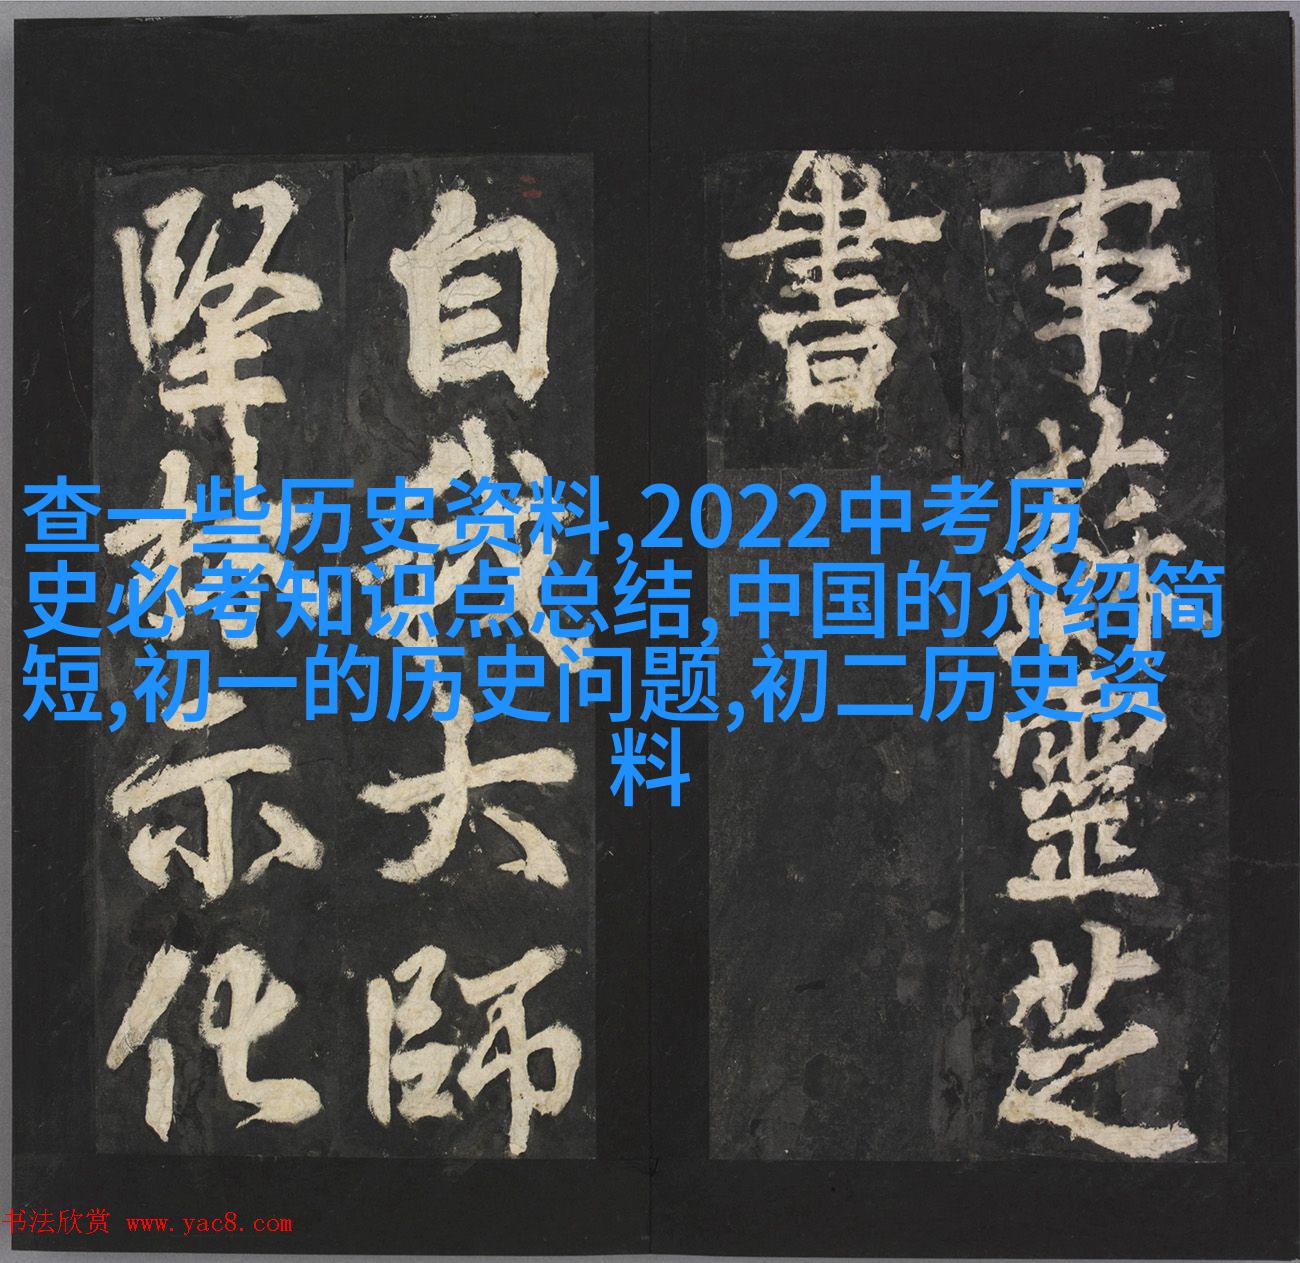 事蘇靈芝
書
自我大師
堅林示化
查一些历史资料,2022中考历
史必考知识点总结,中国的介绍简
短,初一的历史问题,初二历史资
料
书法欣赏 www.yac8.com